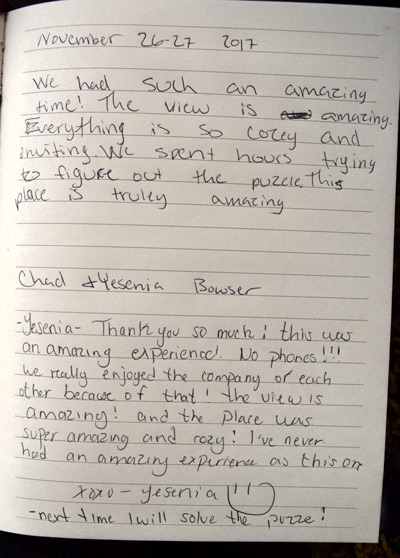 November 26-27 2017
We had such an amazing
time! The view is amazing.
Everything is so cozey and
inviting. We spent hours trying
to figure out the puzzle. This
place is truley amazing
Chad & Yesenia Bowser
-Yesenia- Thank you so much! this was
an amazing experience! No phones!!!
we really enjoyed the company of each
other because of that! the view is
amazing! and the place was
super amazing and cozy! I've never
had an amazing experience as this one
xoxo - yesenia
-next time I will solve the puzze!